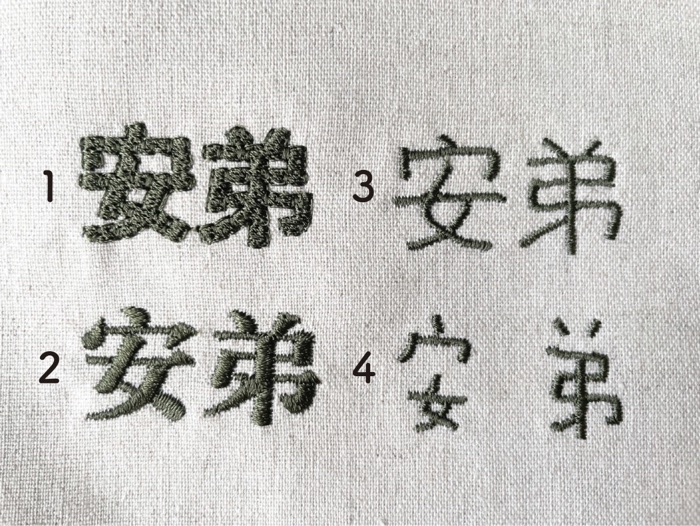 1 安弟 3 安弟
2 安弟 4 安弟